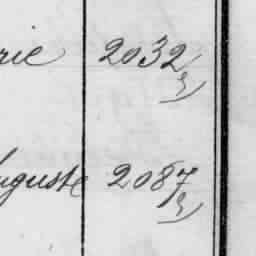 rie 2032
uguste 2087